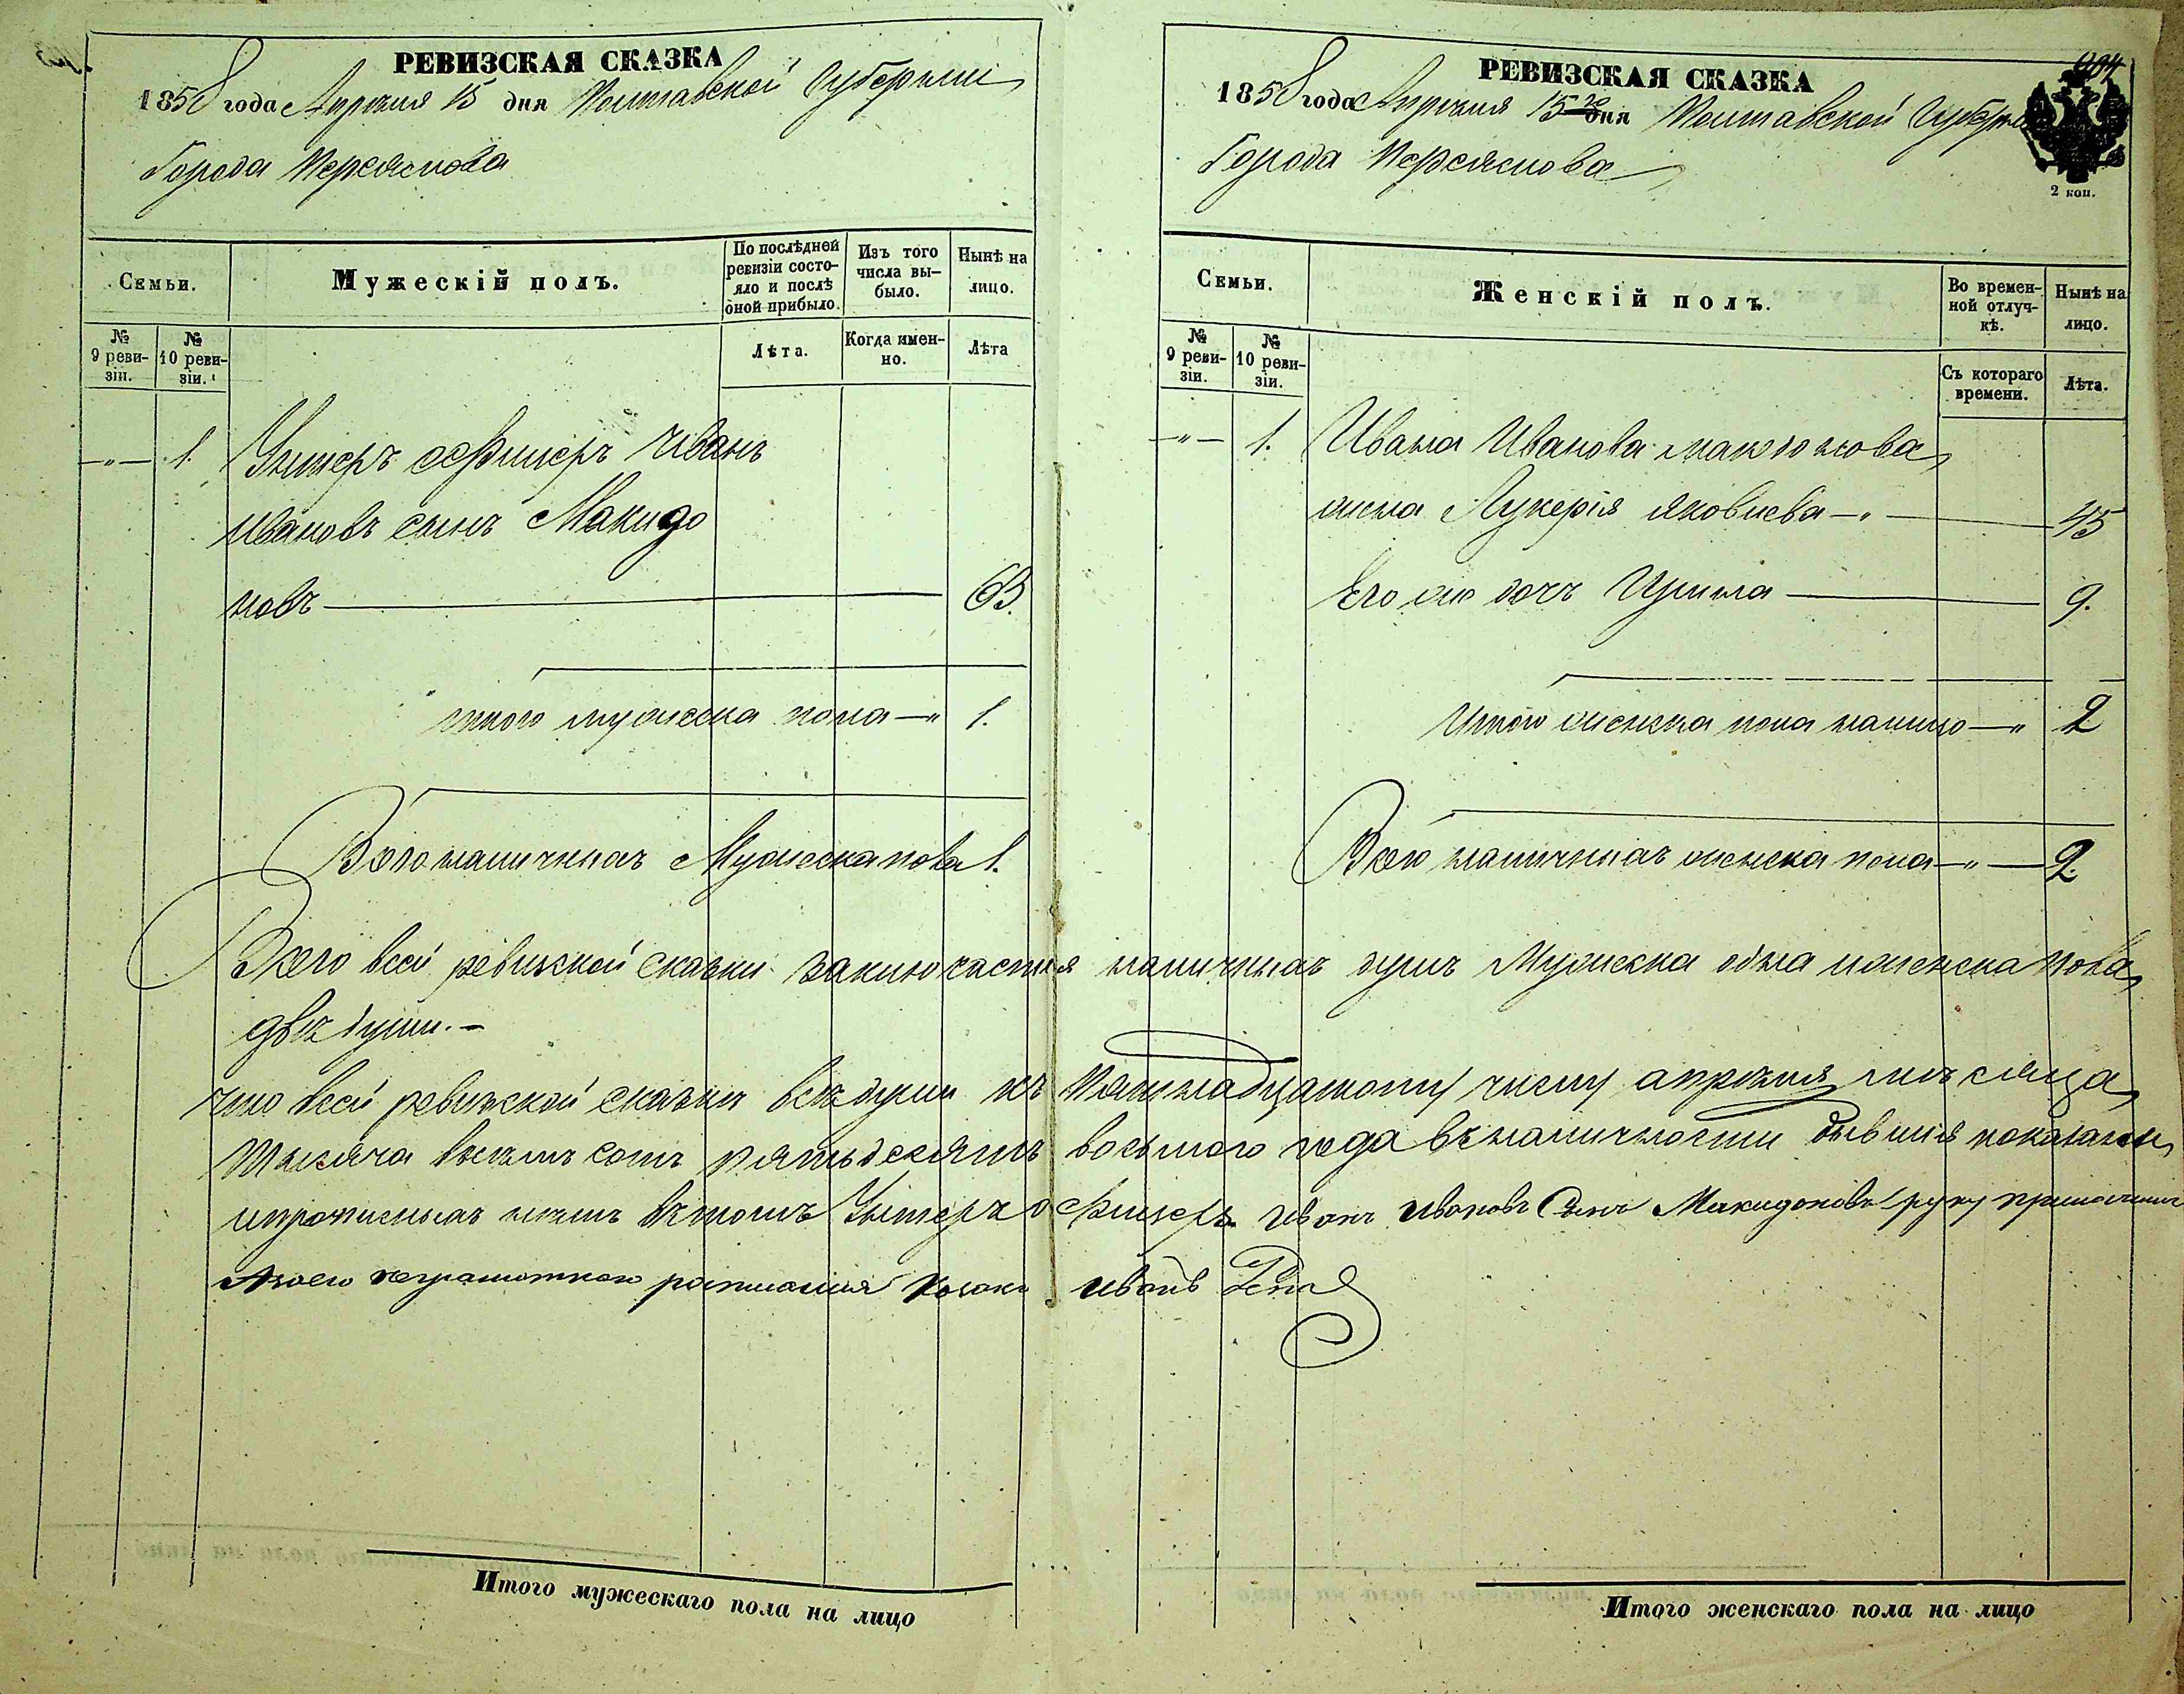 РЕВИЗСКАЯ СКАЗКА
1858 года Апрѣля 15 дня Полтавской Губерніи
Города Переяслова
Семьи.
Мужескій полъ.
По послѣдней ревизіи состо-
яло и послѣ оной прибыло.
Изъ того числа вы-
было.
Нынѣ на лицо.
№ 9 реви-
зіи.
№ 10 реви-
зіи.
Лѣта.
Когда имен-
но.
Лѣта
—"— 1. Унтеръ офицеръ Иванъ
Ивановъ сынъ Макидо
новъ — 63.
итого мужеска пола —" 1.
Всего наличныхъ Мужеска пола 1.
РЕВИЗСКАЯ СКАЗКА
1858 года Апрѣля 15 го дня Полтавской Губерніи
Города Переяслова
2 коп.
Семьи.
Женскій полъ.
Во времен-
ной отлуч-
кѣ.
Нынѣ на лицо.
№ 9 реви-
зіи.
№ 10 реви-
зіи.
Съ котораго времени.
Лѣта.
—"— 1. Ивана Иванова Макидонова
жена Лукерія Яковлева —"— 45
Его же дочь Ирина — 9.
Итого женска пола налицо —" 2
Всего наличныхъ женска пола —"— 2.
Всего всей ревизской сказки заключается наличныхъ душъ Мужеска одна иженска пола
двѣ души. –
что всей ревизской сказки всѣ души къ пятнадцатому числу апрѣля мѣсяца
тысяча восемь сотъ пятьдесятъ восьмого года вналичности бывшія показаны
ипрописныхъ нѣтъ втомъ Унтеръ офицеръ Иванъ Ивановъ Сынъ Макидоновъ руку приложилъ
Азаего неграмотного росписался козакъ иванъ
Итого мужескаго пола на лицо
Итого женскаго пола на лицо